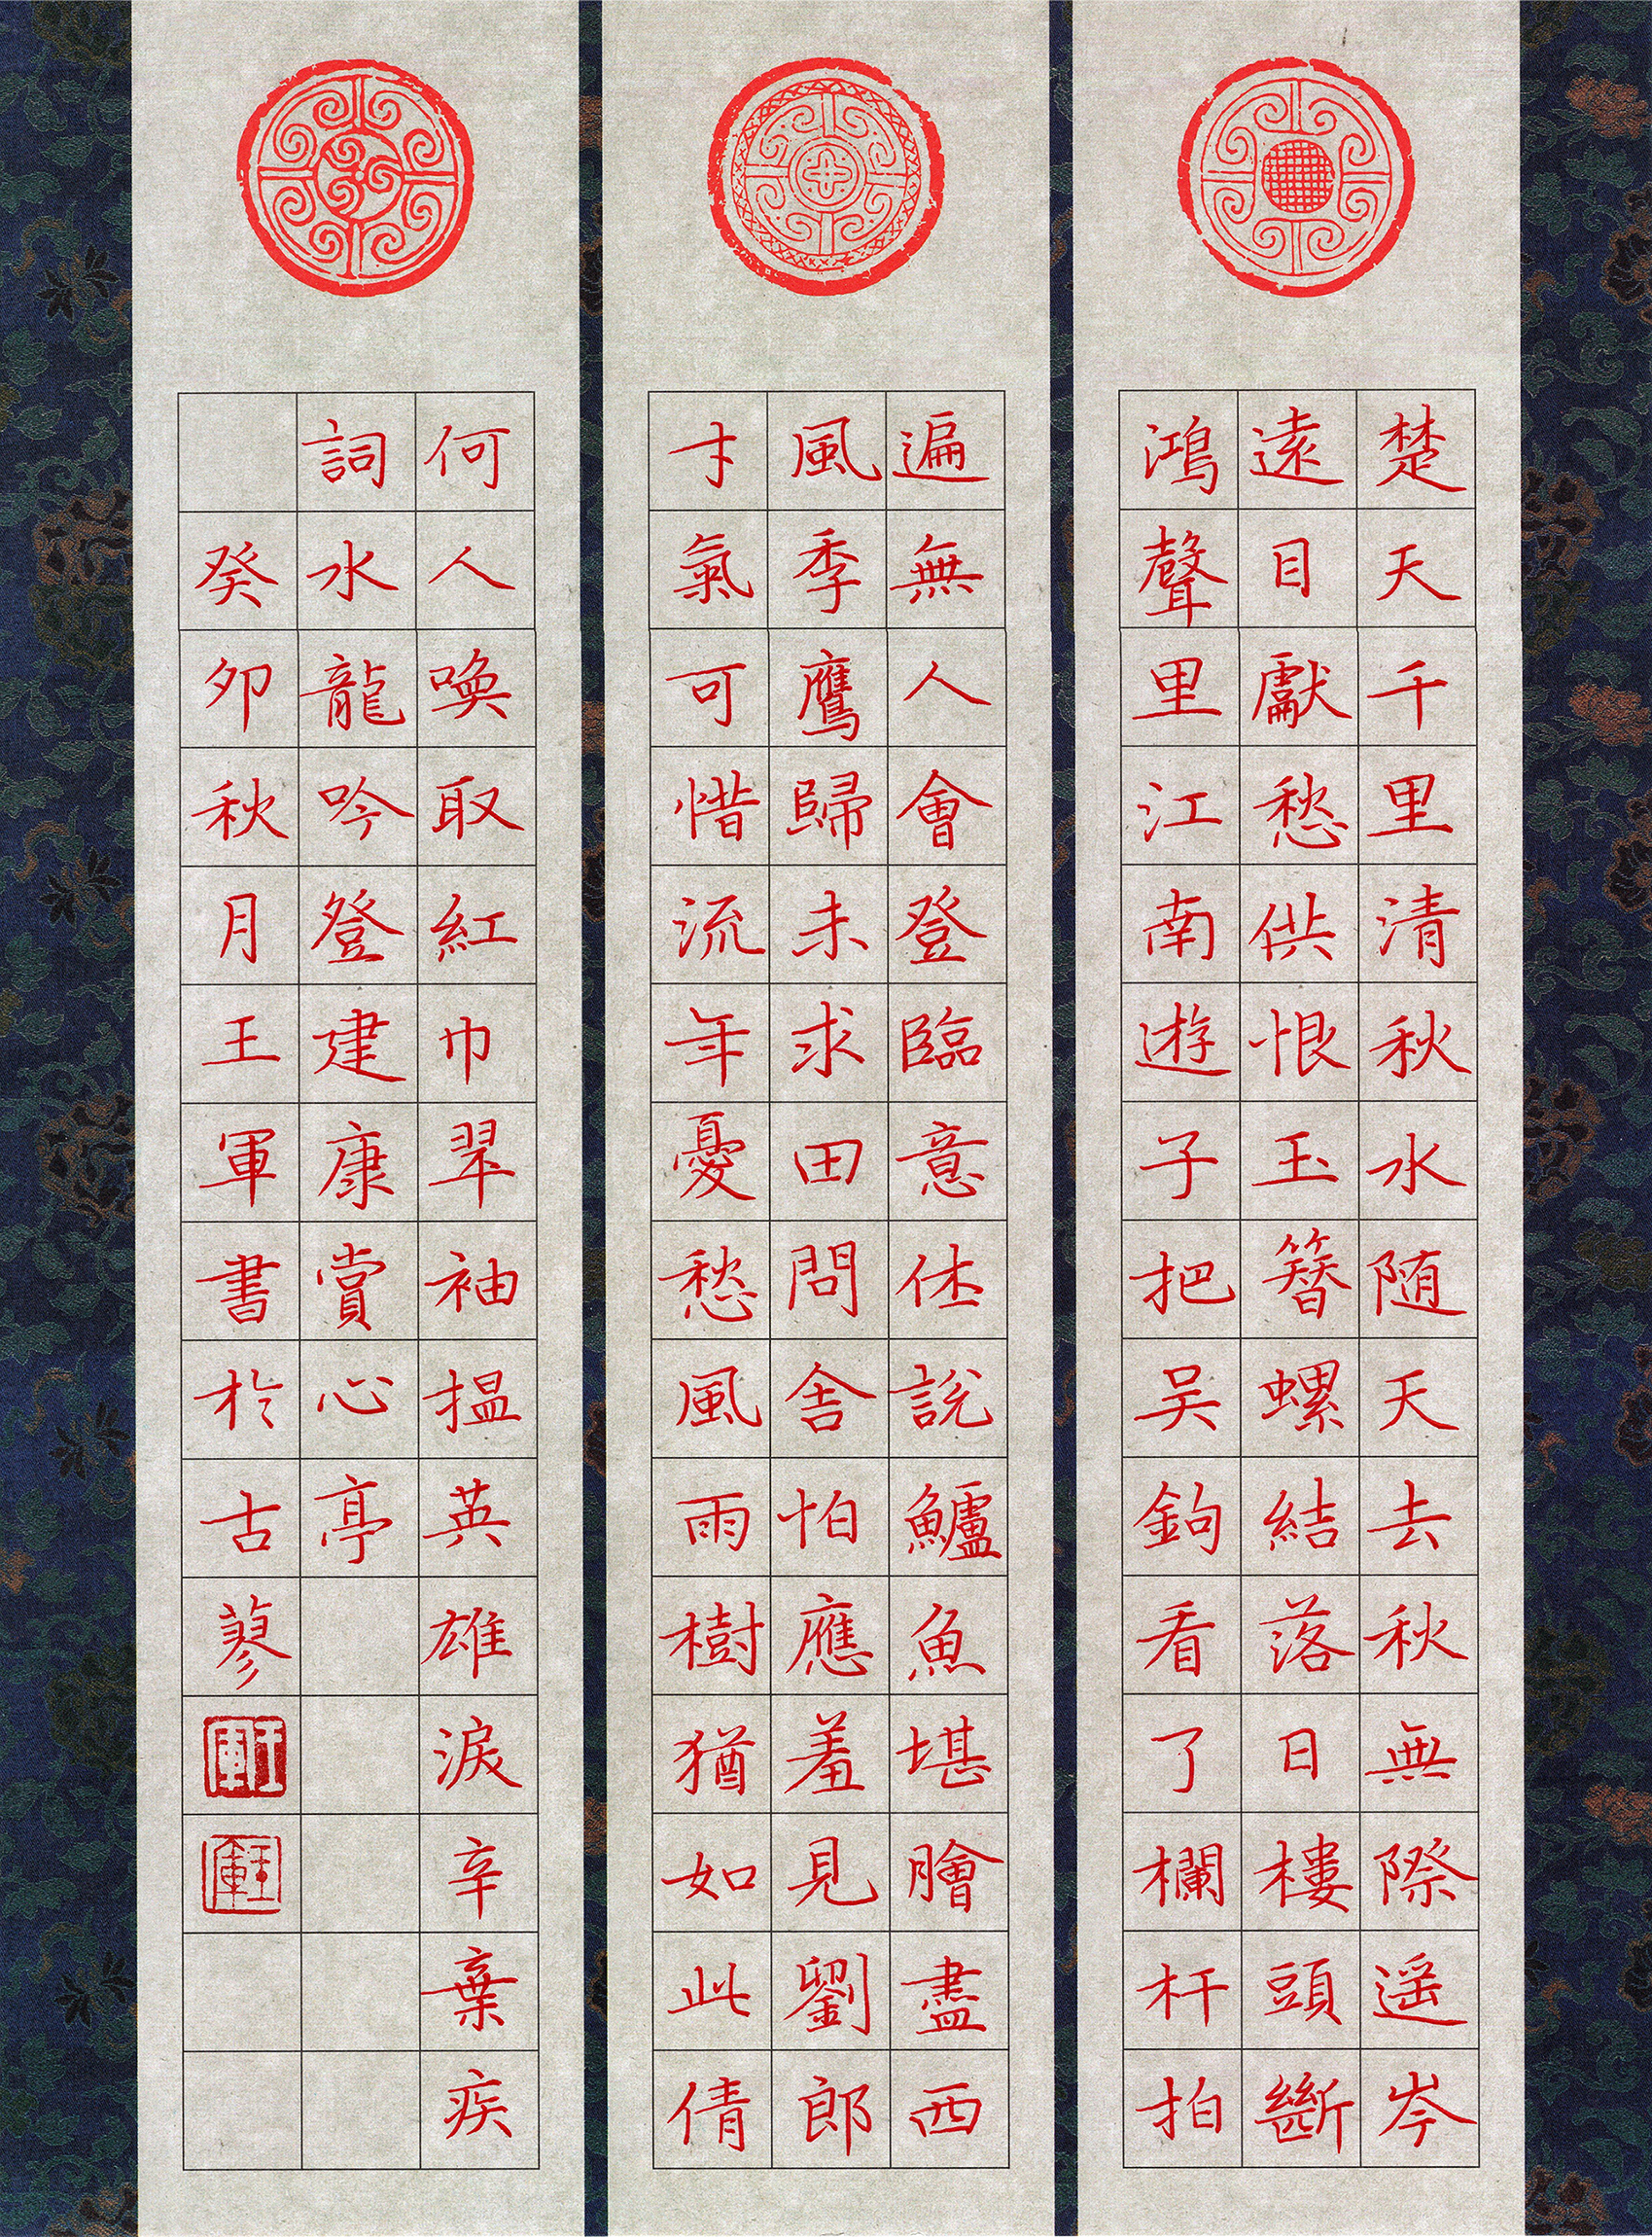 楚天千里清秋水随天去秋無際遥岑
遠目獻愁供恨玉簪螺結落日樓頭斷
鴻聲里江南遊子把吴鉤看了欄杆拍
遍無人會登臨意休說鱸魚堪膾盡西
風季鷹歸未求田問舍怕應羞見劉郎
才氣可惜流年憂愁風雨樹猶如此倩
何人喚取紅巾翠袖搵英雄淚辛棄疾
詞水龍吟登建康賞心亭
癸卯秋月王軍書於古蓼
王軍
王軍